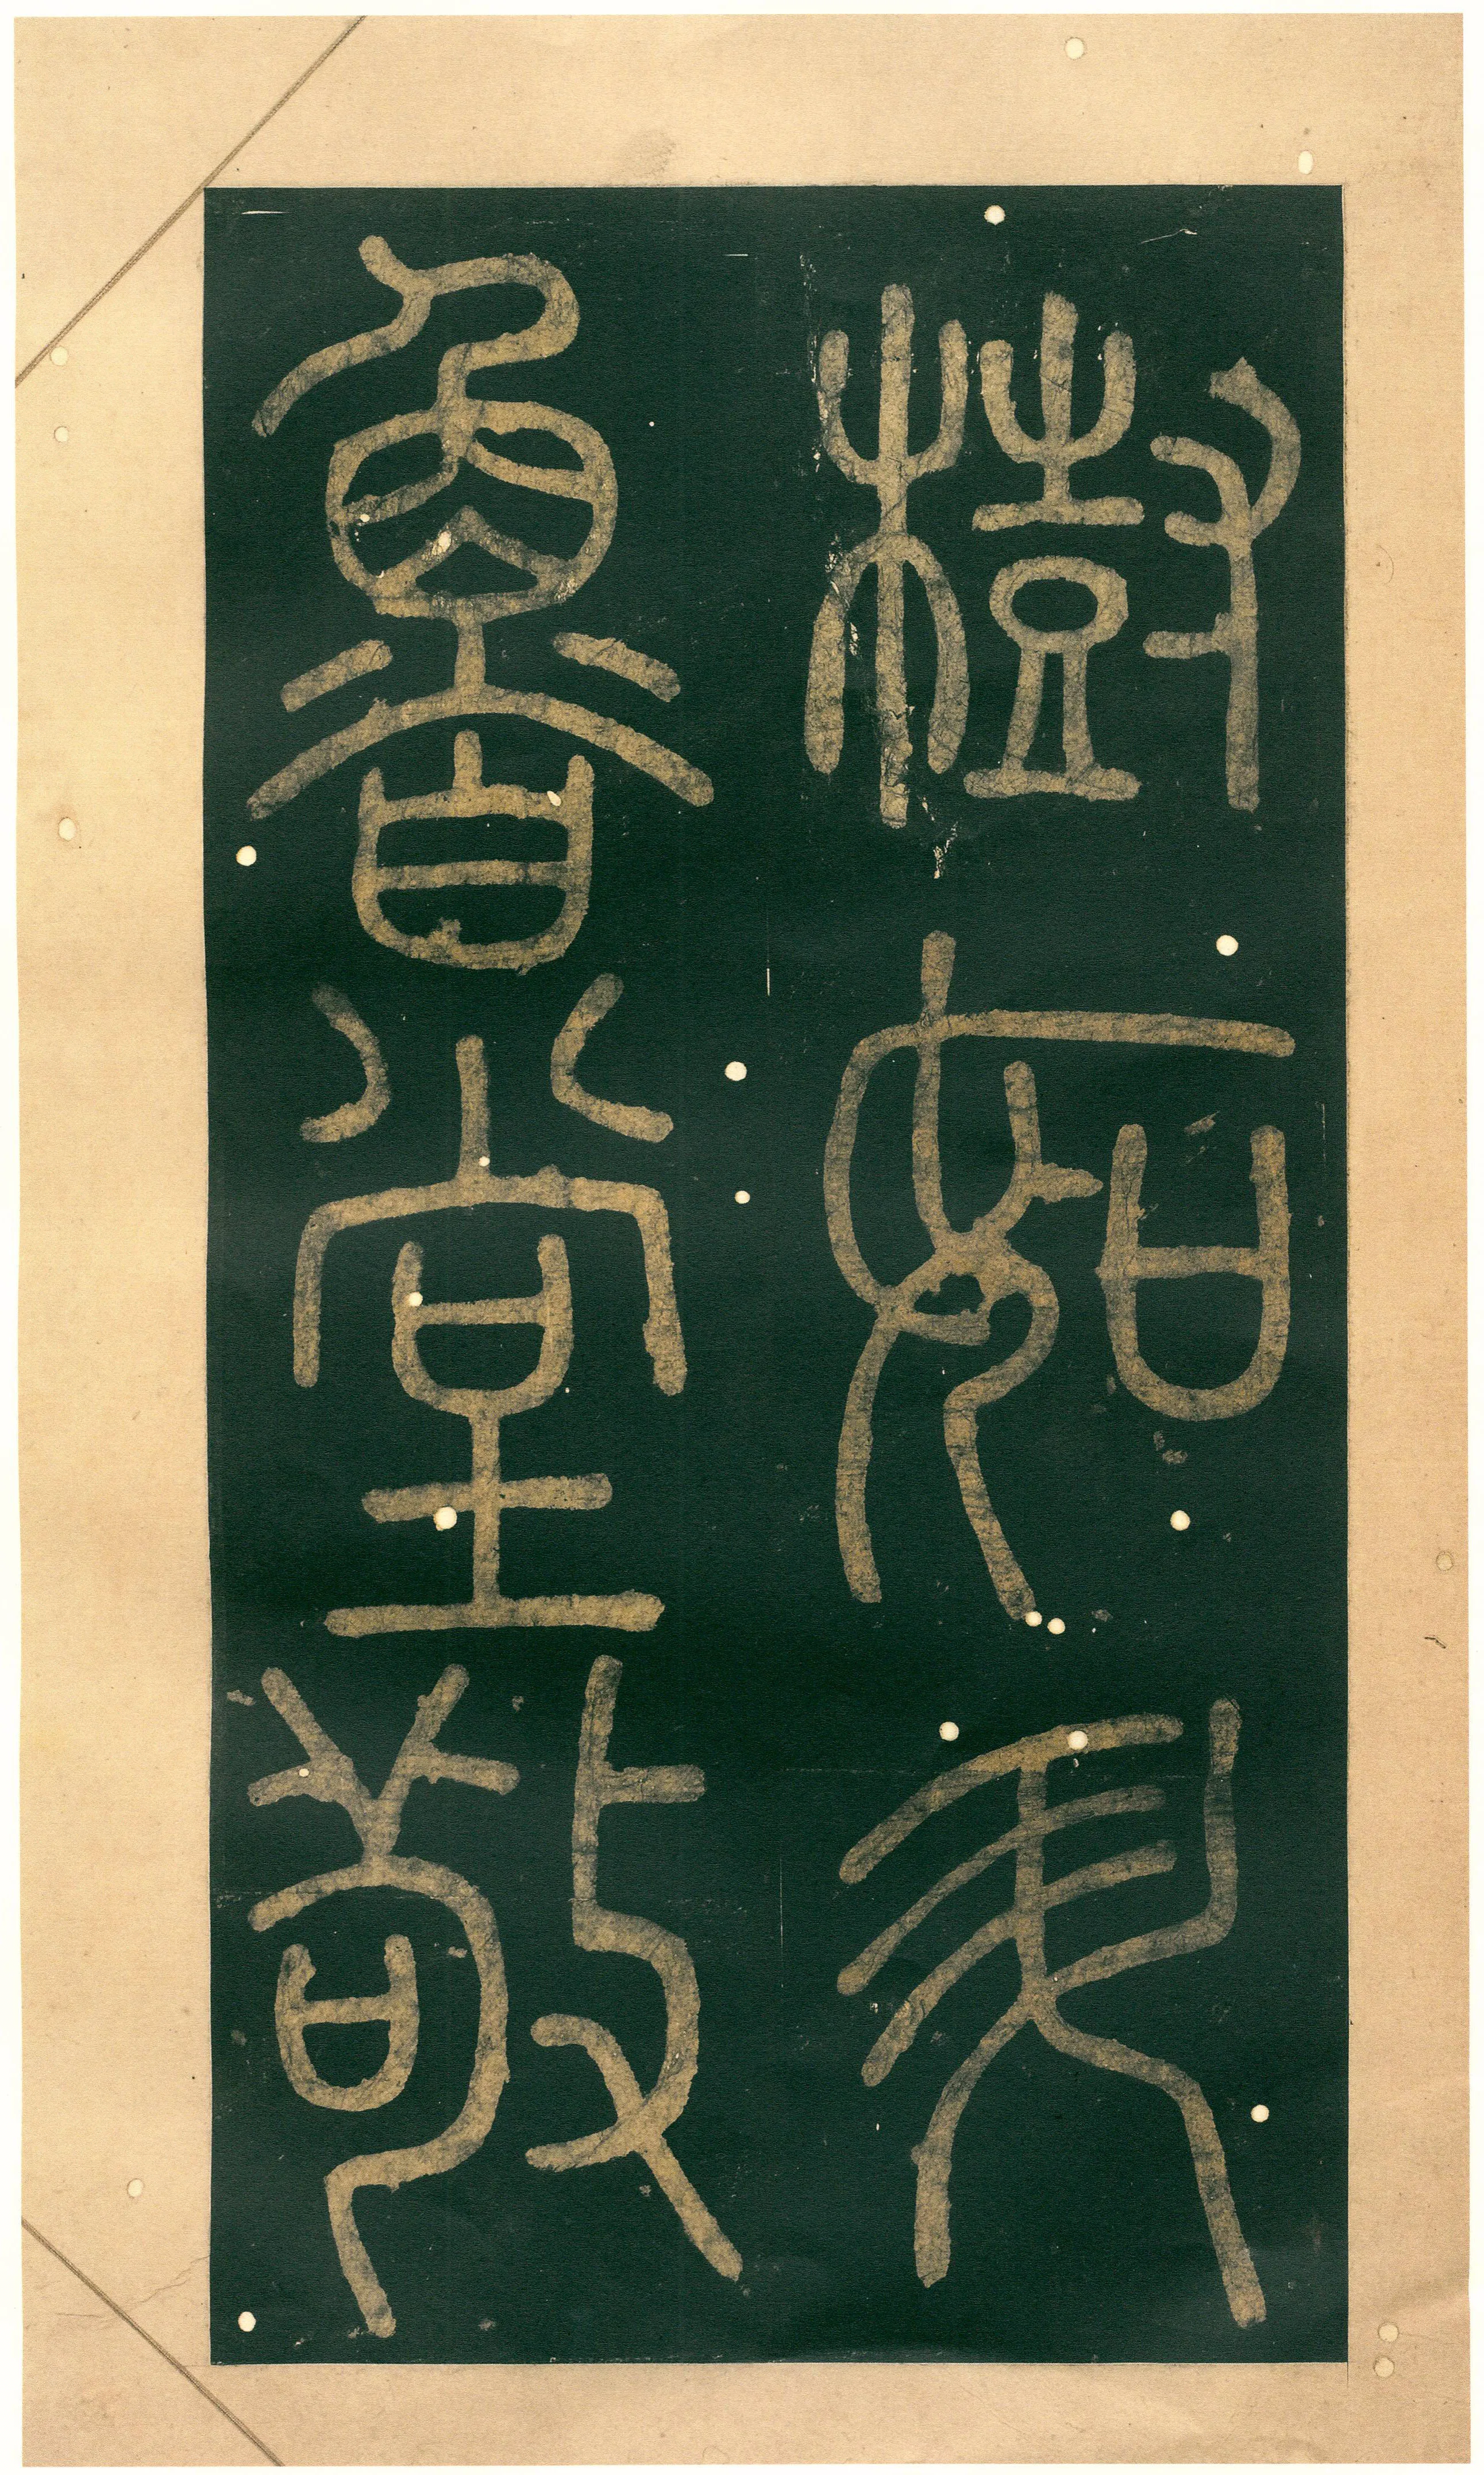 樹如
魯堂敬